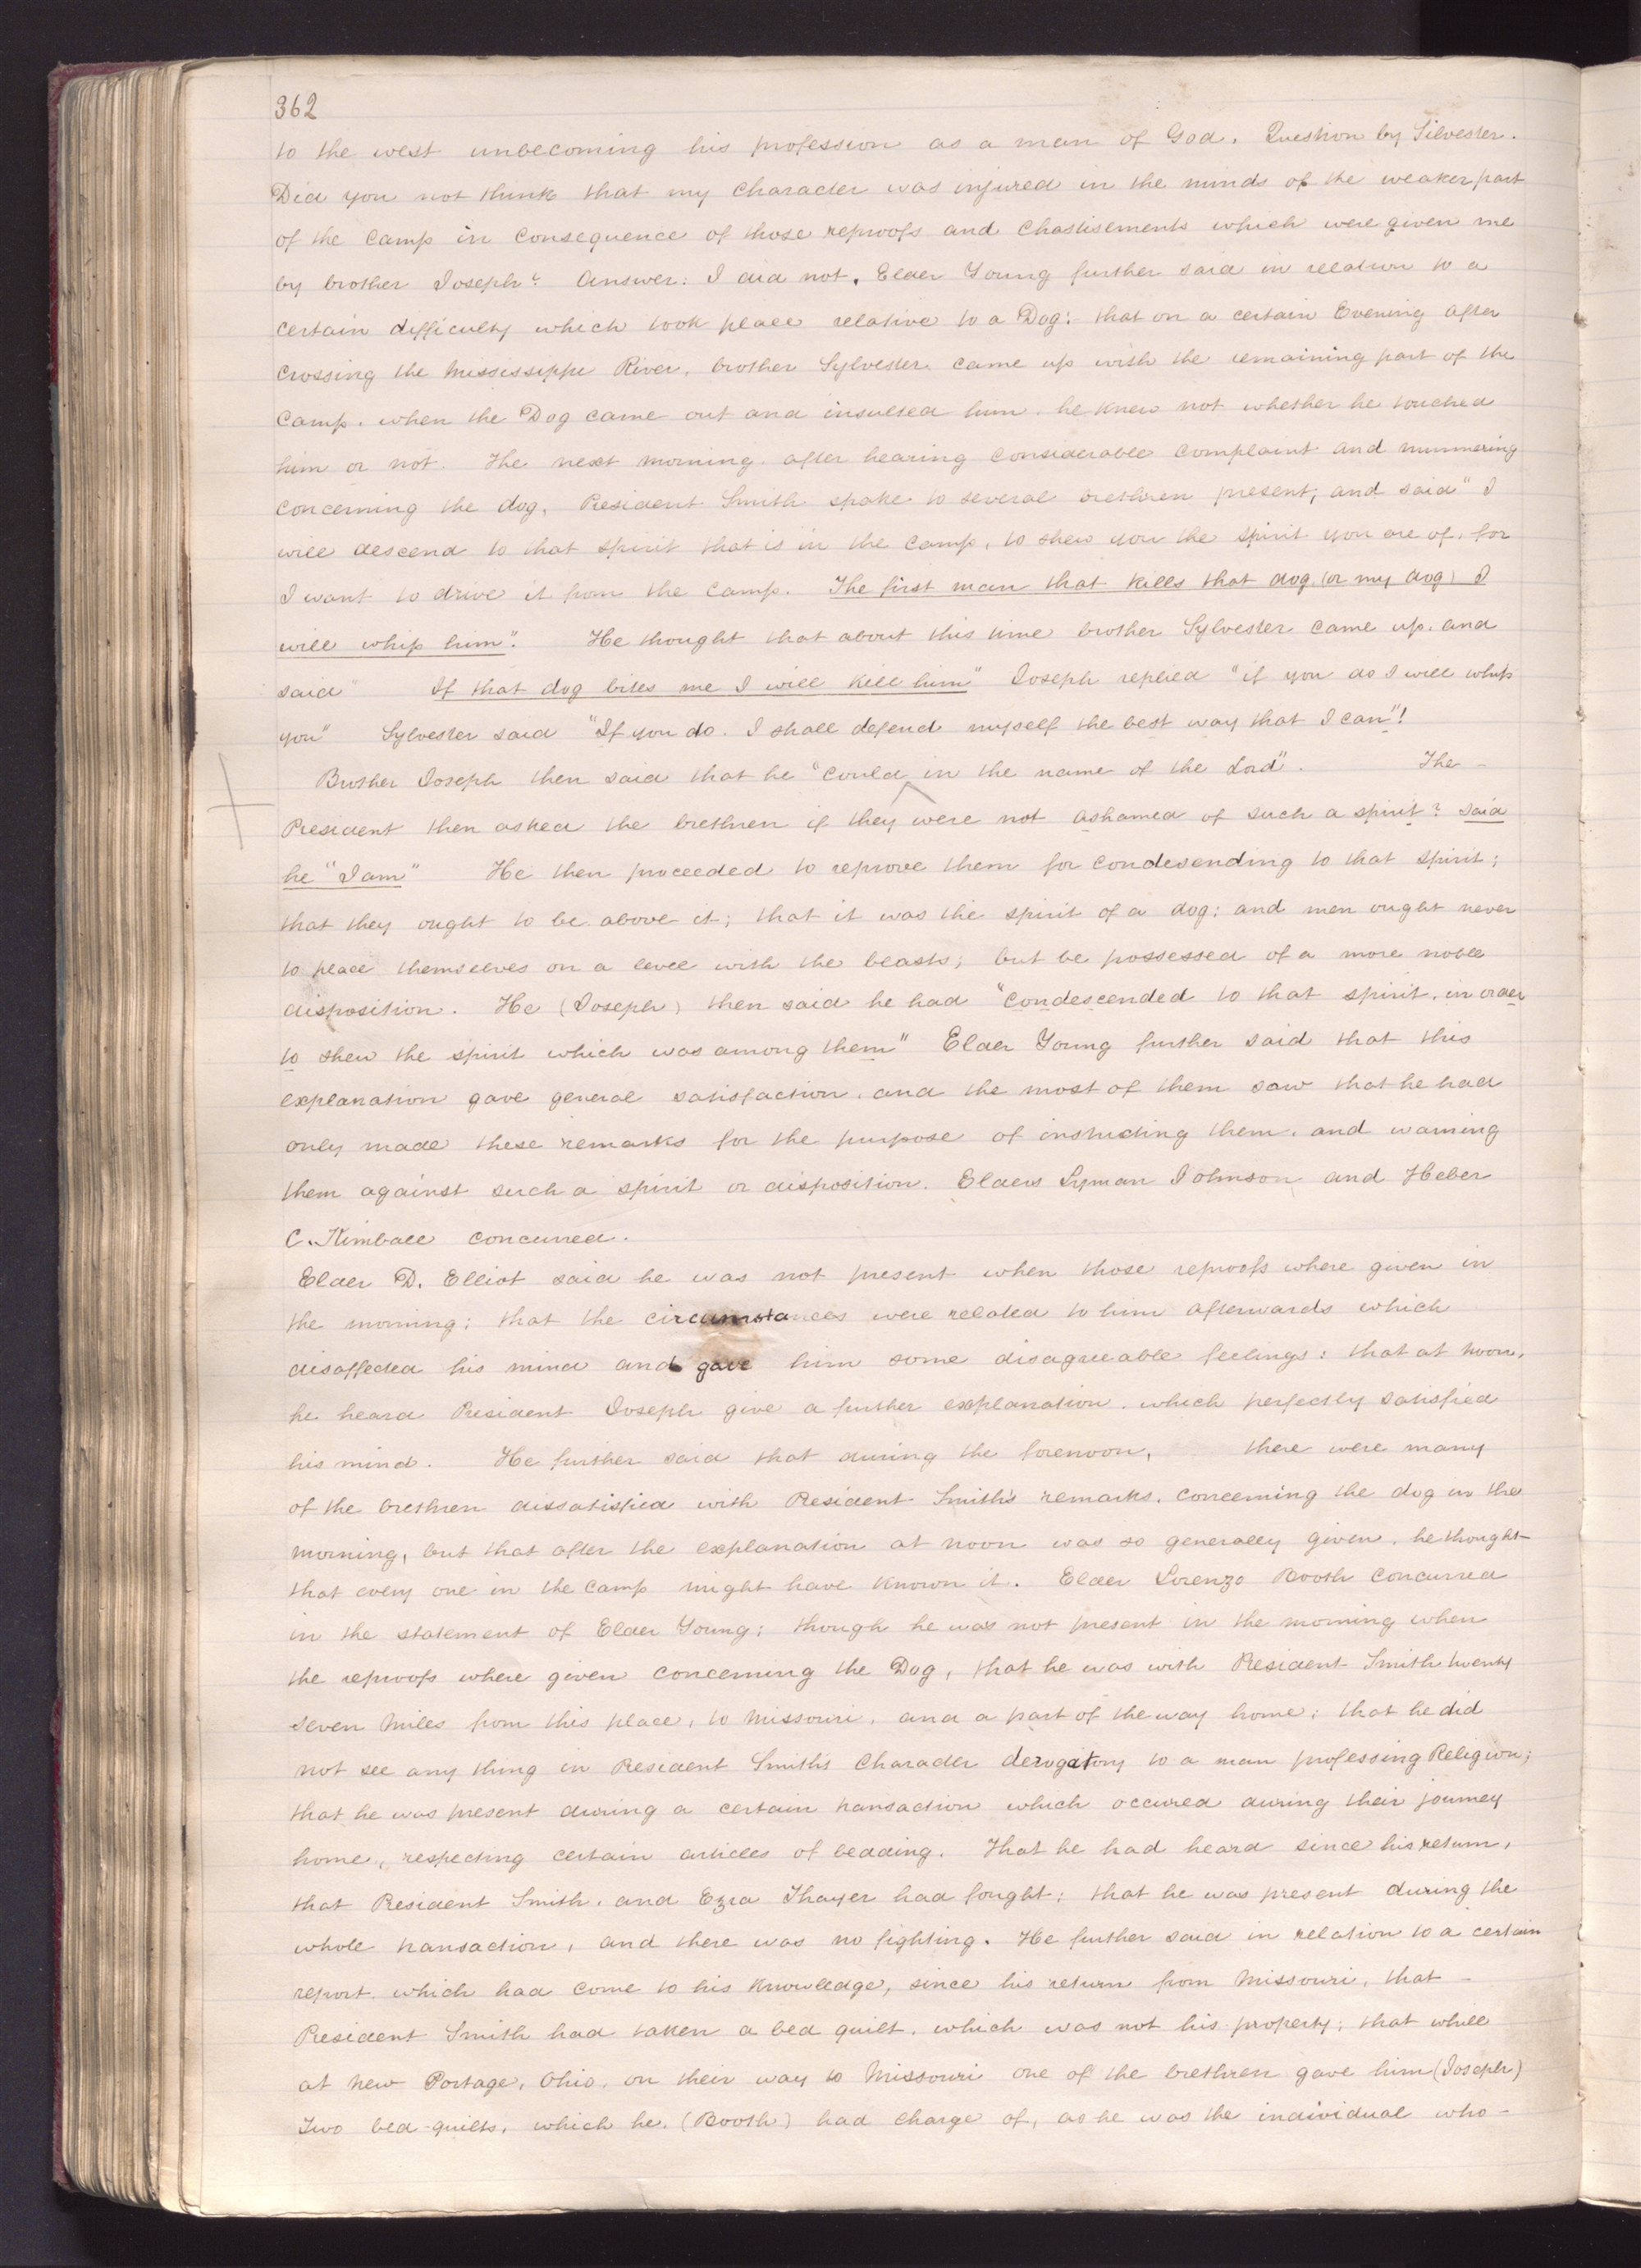 362
to the west unbecoming his profession as a man of God. Question by Silvester.
Did you not think that my character was injured in the minds of the weaker part
of the Camp in consequence of those reproofs and chastisements which were given me
by brother Joseph? Answer: I did not. Elder Young further said in relation to a
certain difficulty which took place relative to a Dog: that on a certain Evening after
crossing the Mississippi River, brother Sylvester came up with the remaining part of the
Camp, when the Dog came out and insulted him, he knew not whether he touched
him or not. The next morning, after hearing considerable complaint and murmering
concerning the dog, President Smith spoke to several brethren present; and said "I
will descend to that spirit that is in the camp, to shew you the spirit you are of, for
I want to drive it from the Camp. The first man that kills that dog (or my dog) I
will whip him". He thought that about this time brother Sylvester came up, and
said " If that dog bites me I will kill him" Joseph replied "if you do I will whip
you" Sylvester said "If you do. I shall defend myself the best way that I can"!
Brother Joseph then said that he "could in the name of the Lord". The -
President then asked the brethren if they were not ashamed of such a spirit? said
he "I am" He then proceeded to reprove them for condesending to that spirit;
that they ought to be above it; that it was the spirit of a dog; and men ought never
to place themselves on a level with the beasts; but be possessed of a more noble
disposition. He (Joseph) then said he had "condescended to that spirit, in order
to shew the spirit which was among them" Elder Young further said that this
explanation gave general satisfaction, and the most of them saw that he had
only made these remarks for the purpose of instructing them, and warning
them against such a spirit or disposition. Elders Lyman Johnson and Heber
C. Kimball concurred.
Elder D. Elliot said he was not present when those reproofs where given in
the morning; that the circumstances were related to him afterwards which
disaffected his mind and gave him some disagreeable feelings: that at noon,
he heard President Joseph give a further explanation, which perfectly satisfied
his mind. He further said that during the forenoon, there were many
of the brethren dissatisfied with President Smith's remarks, concerning the dog in the
morning, but that after the explanation at noon was so generally given, he thought
that every one in the camp might have known it. Elder Lorenzo Booth concurred
in the statement of Elder Young; though he was not present in the morning when
the reproofs where given concerning the Dog, that he was with President Smith twenty
seven miles from this place, to Missouri, and a part of the way home; that he did
not see any thing in President Smith's Character derogatory to a man professing Religion;
that he was present during a certain transaction which occured during their journey
home, respecting certain articles of bedding. That he had heard since his return,
that President Smith, and Ezra Thayer had fought; that he was present during the
whole transaction, and there was no fighting. He further said in relation to a certain
report, which had come to his knowledge, since his return from Missouri, that -
President Smith had taken a bed quilt, which was not his property; that while
at New Portage, Ohio, on their way to Missouri one of the brethren gave him (Joseph)
Two bed-quilts, which he, (Booth) had charge of, as he was the individual who -